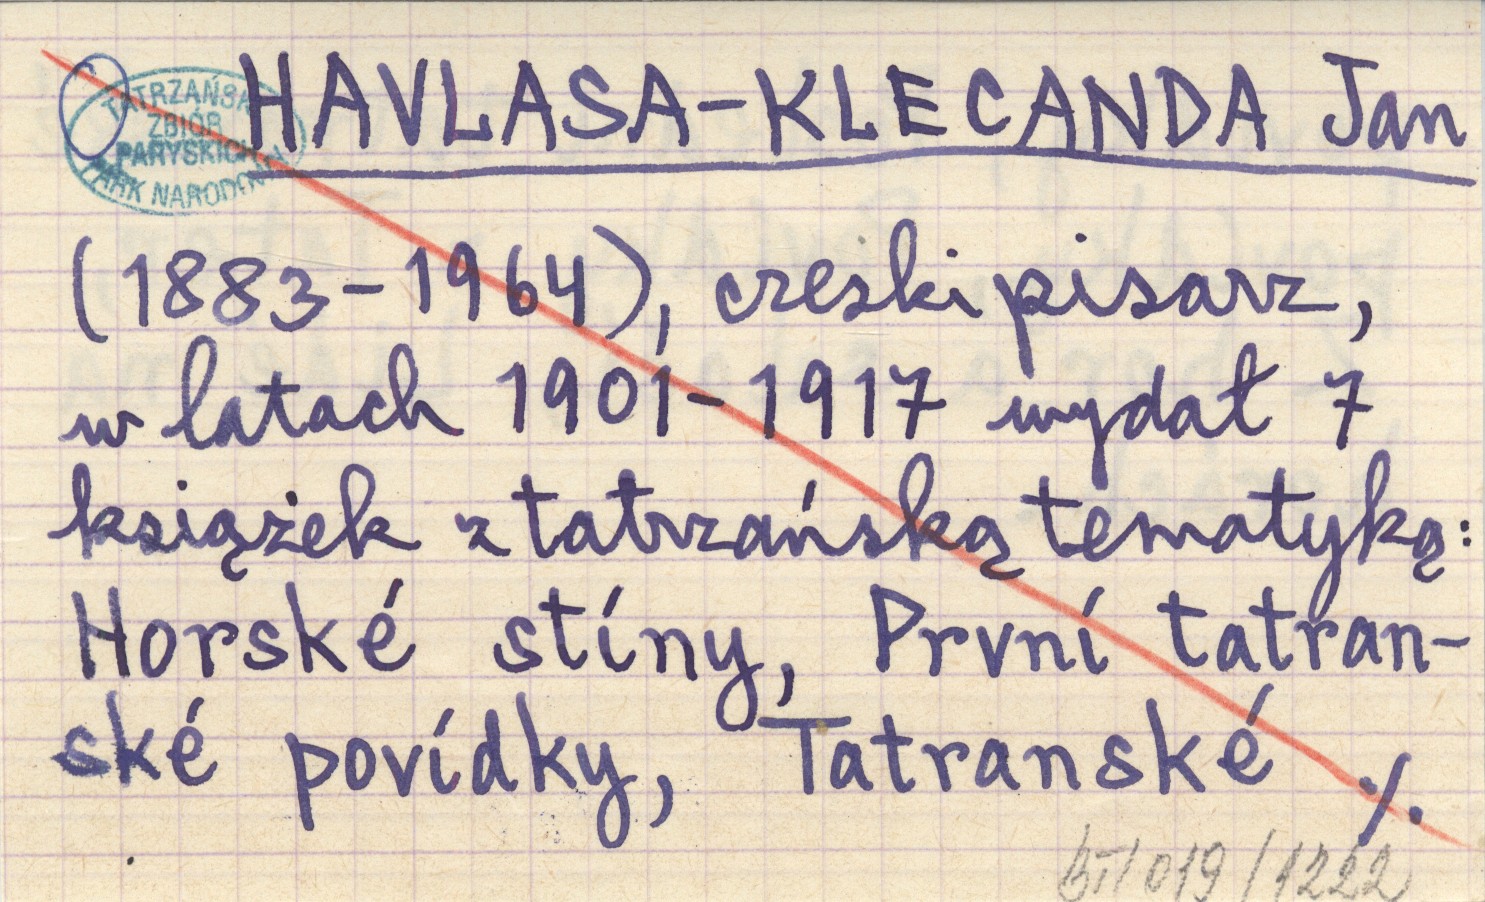 HAVLASA-KLECANDA Jan
TATRZAŃSKA
ZBIÓR
PARYSKICH
PARK NARODOWY
(1883-1964), czeski pisarz,
w latach 1901-1917 wydał 7
książek z tatrzańską tematyką:
Horské stíny, První tatran-
ské povídky, Tatranské ./.
019/1222